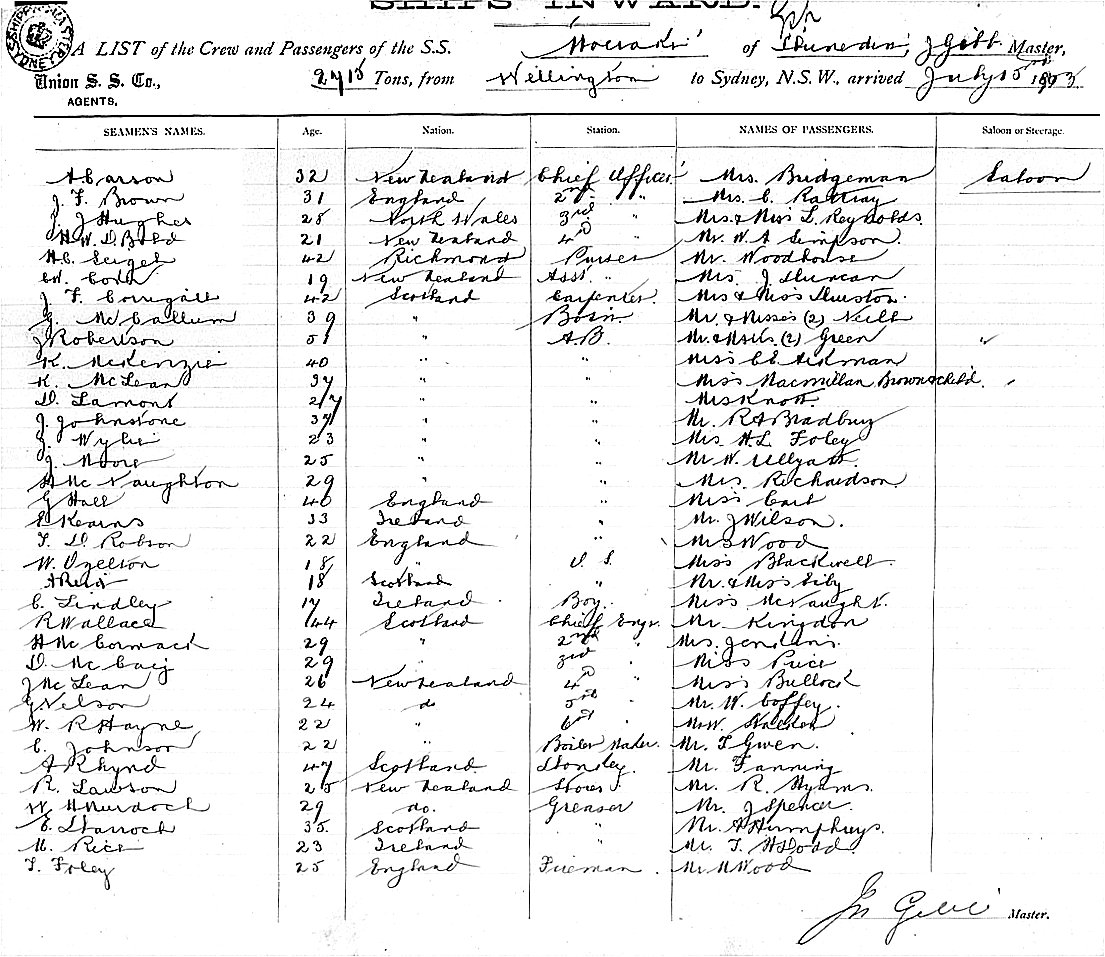 SHIPS INWARD.
A LIST of the Crew and Passengers of the S.S. Moeraki of Dunedin, J Gibb Master,
Union S. S. Co., 2715 Tons, from Wellington to Sydney, N.S.W., arrived July 15
AGENTS.
SEAMEN'S NAMES. Age. Nation. Station. NAMES OF PASSENGERS. Saloon or Steerage.
A Carson 32 New Zealand Chief Officer Mrs. Bridgeman Saloon
J. F. Brown 31 England 2nd " Mrs. C. Rattray
J. J Hughes 28 North Wales 3rd " Mrs. & Miss L. Reynolds.
21 New Zealand 4th " Mr. W. A Simpson.
42 Richmond Purser Mr. Woodhouse
19 New Zealand Asst. " Mrs. J. Duncan
J F. Corrigall 42 Scotland Carpenter. Mrs & Miss
G. McCallum 39 " Bosin. Mr. & Misses (2) Neill
J Robertson 51 " A.B. (2) Green "
K. McKenzie 40 " " Miss C E Aickman
K. McLean 37 " " Miss Macmillan Brown & child. "
D. Lamont 27 " " Mrs Knott.
J. Johnstone 37 " " Mr. R A Bradbury
J. Wylie 23 " " Mrs H L Foley
J. Moore 25 " " Mr W. Ullyatt.
H McNaughton 29 " " Mrs. Richardson
G Hall 40 England " Miss
E Kearns 33 Ireland " Mr. J Wilson.
T. D. Robson 22 England " Wood
W. 18 " O. S. Miss Blackwell
A Reid 18 Scotland " Mr. & Mrs
C. Lindley 17 Ireland Boy. Miss McNaught.
R Wallace 44 Scotland Chief Engr. Mr Kingdon
H McCormack 29 " 2nd " Mrs. Jenkins
D. McCaig 29 " 3rd " Miss Price
J McLean 26 New Zealand 4th " Miss Bullock
G Nelson 24 do 5th " Mr. W. Coffey.
W. R Hayne 22 " 6th "
C. Johnson 22 " Boiler Maker. Mr. T Gwen.
A Rhynd 47 Scotland Donkey. Mr. Fanning
R. Lawson 25 New Zealand Stores Mr. R. Hyams.
W H Murdoch 29 do. Greaser Mr. J Spencer.
E. Darroch 35. Scotland " Mr. A Humphreys.
M. Rice 23 Ireland " Mr. T.
T. Foley 25 England Fireman. Mr M Wood
Master.